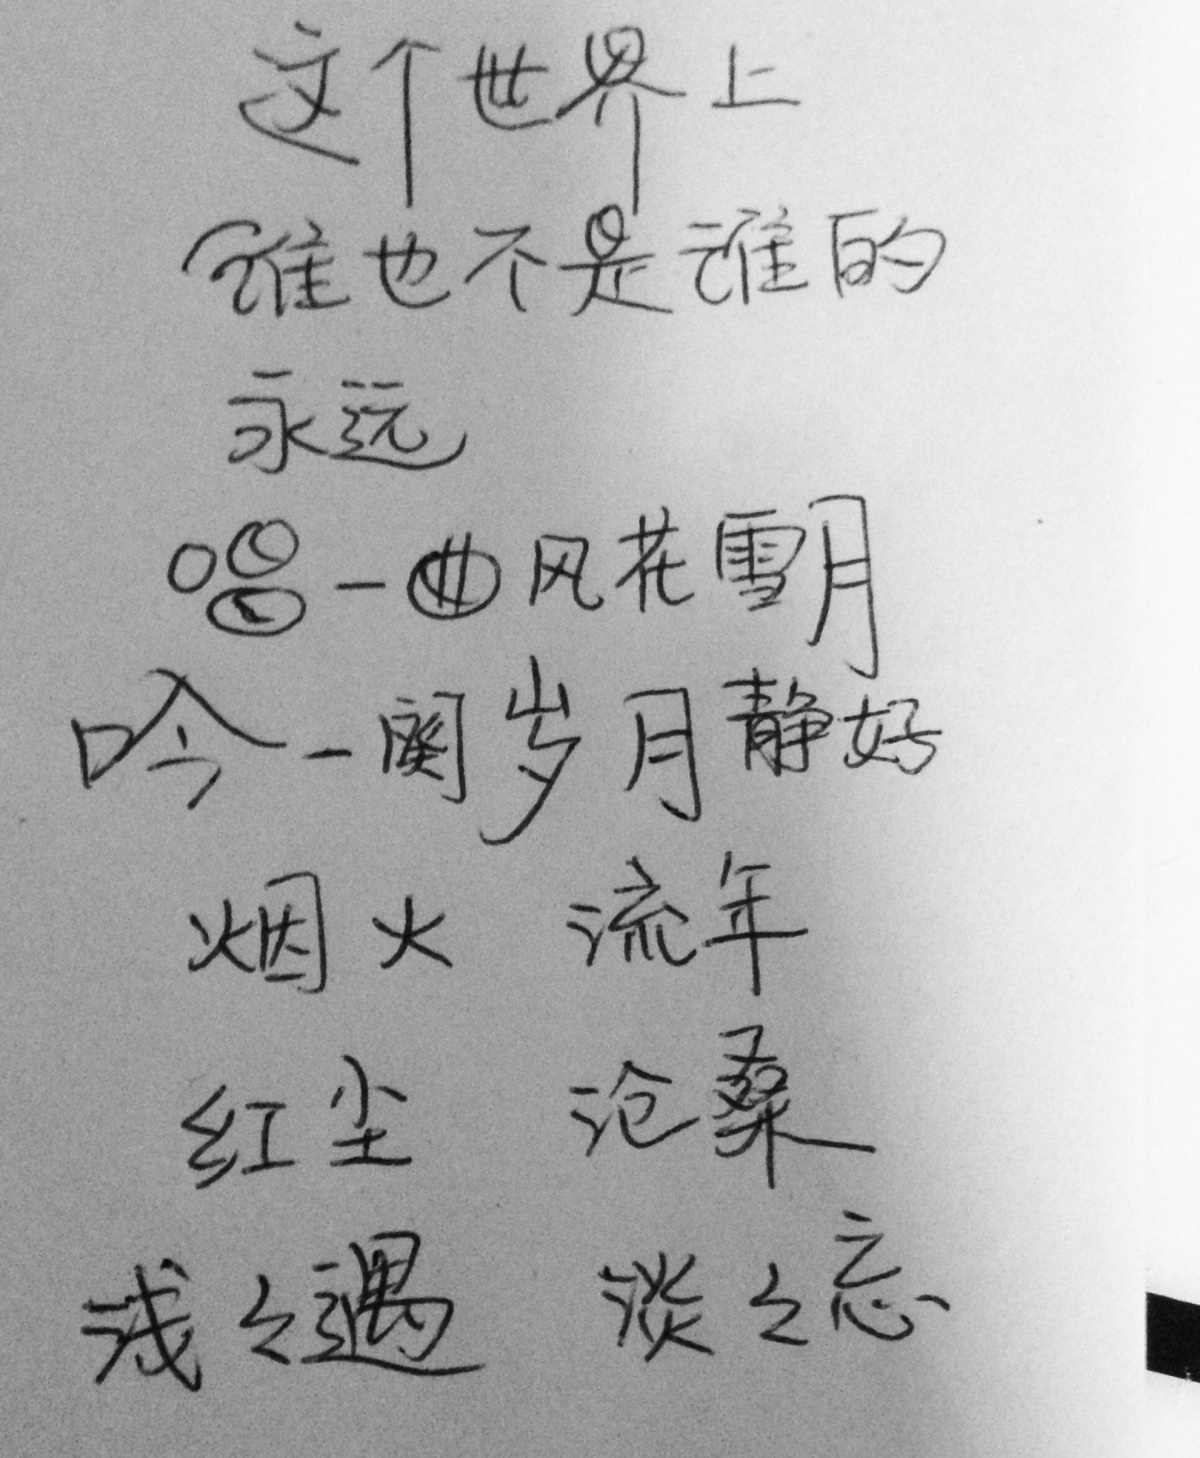 这个世界上
谁也不是谁的
永远
唱一曲风花雪月
吟一阕岁月静好
烟火 流年
红尘 沧桑
浅々遇 淡々忘